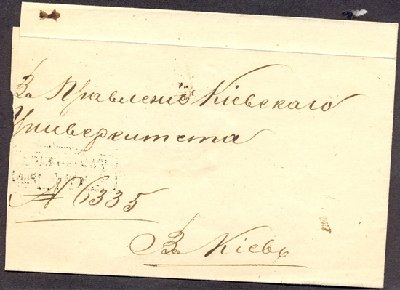 Въ Правленіе Кіевскаго
Университета
№ 6335
Въ Кіевъ